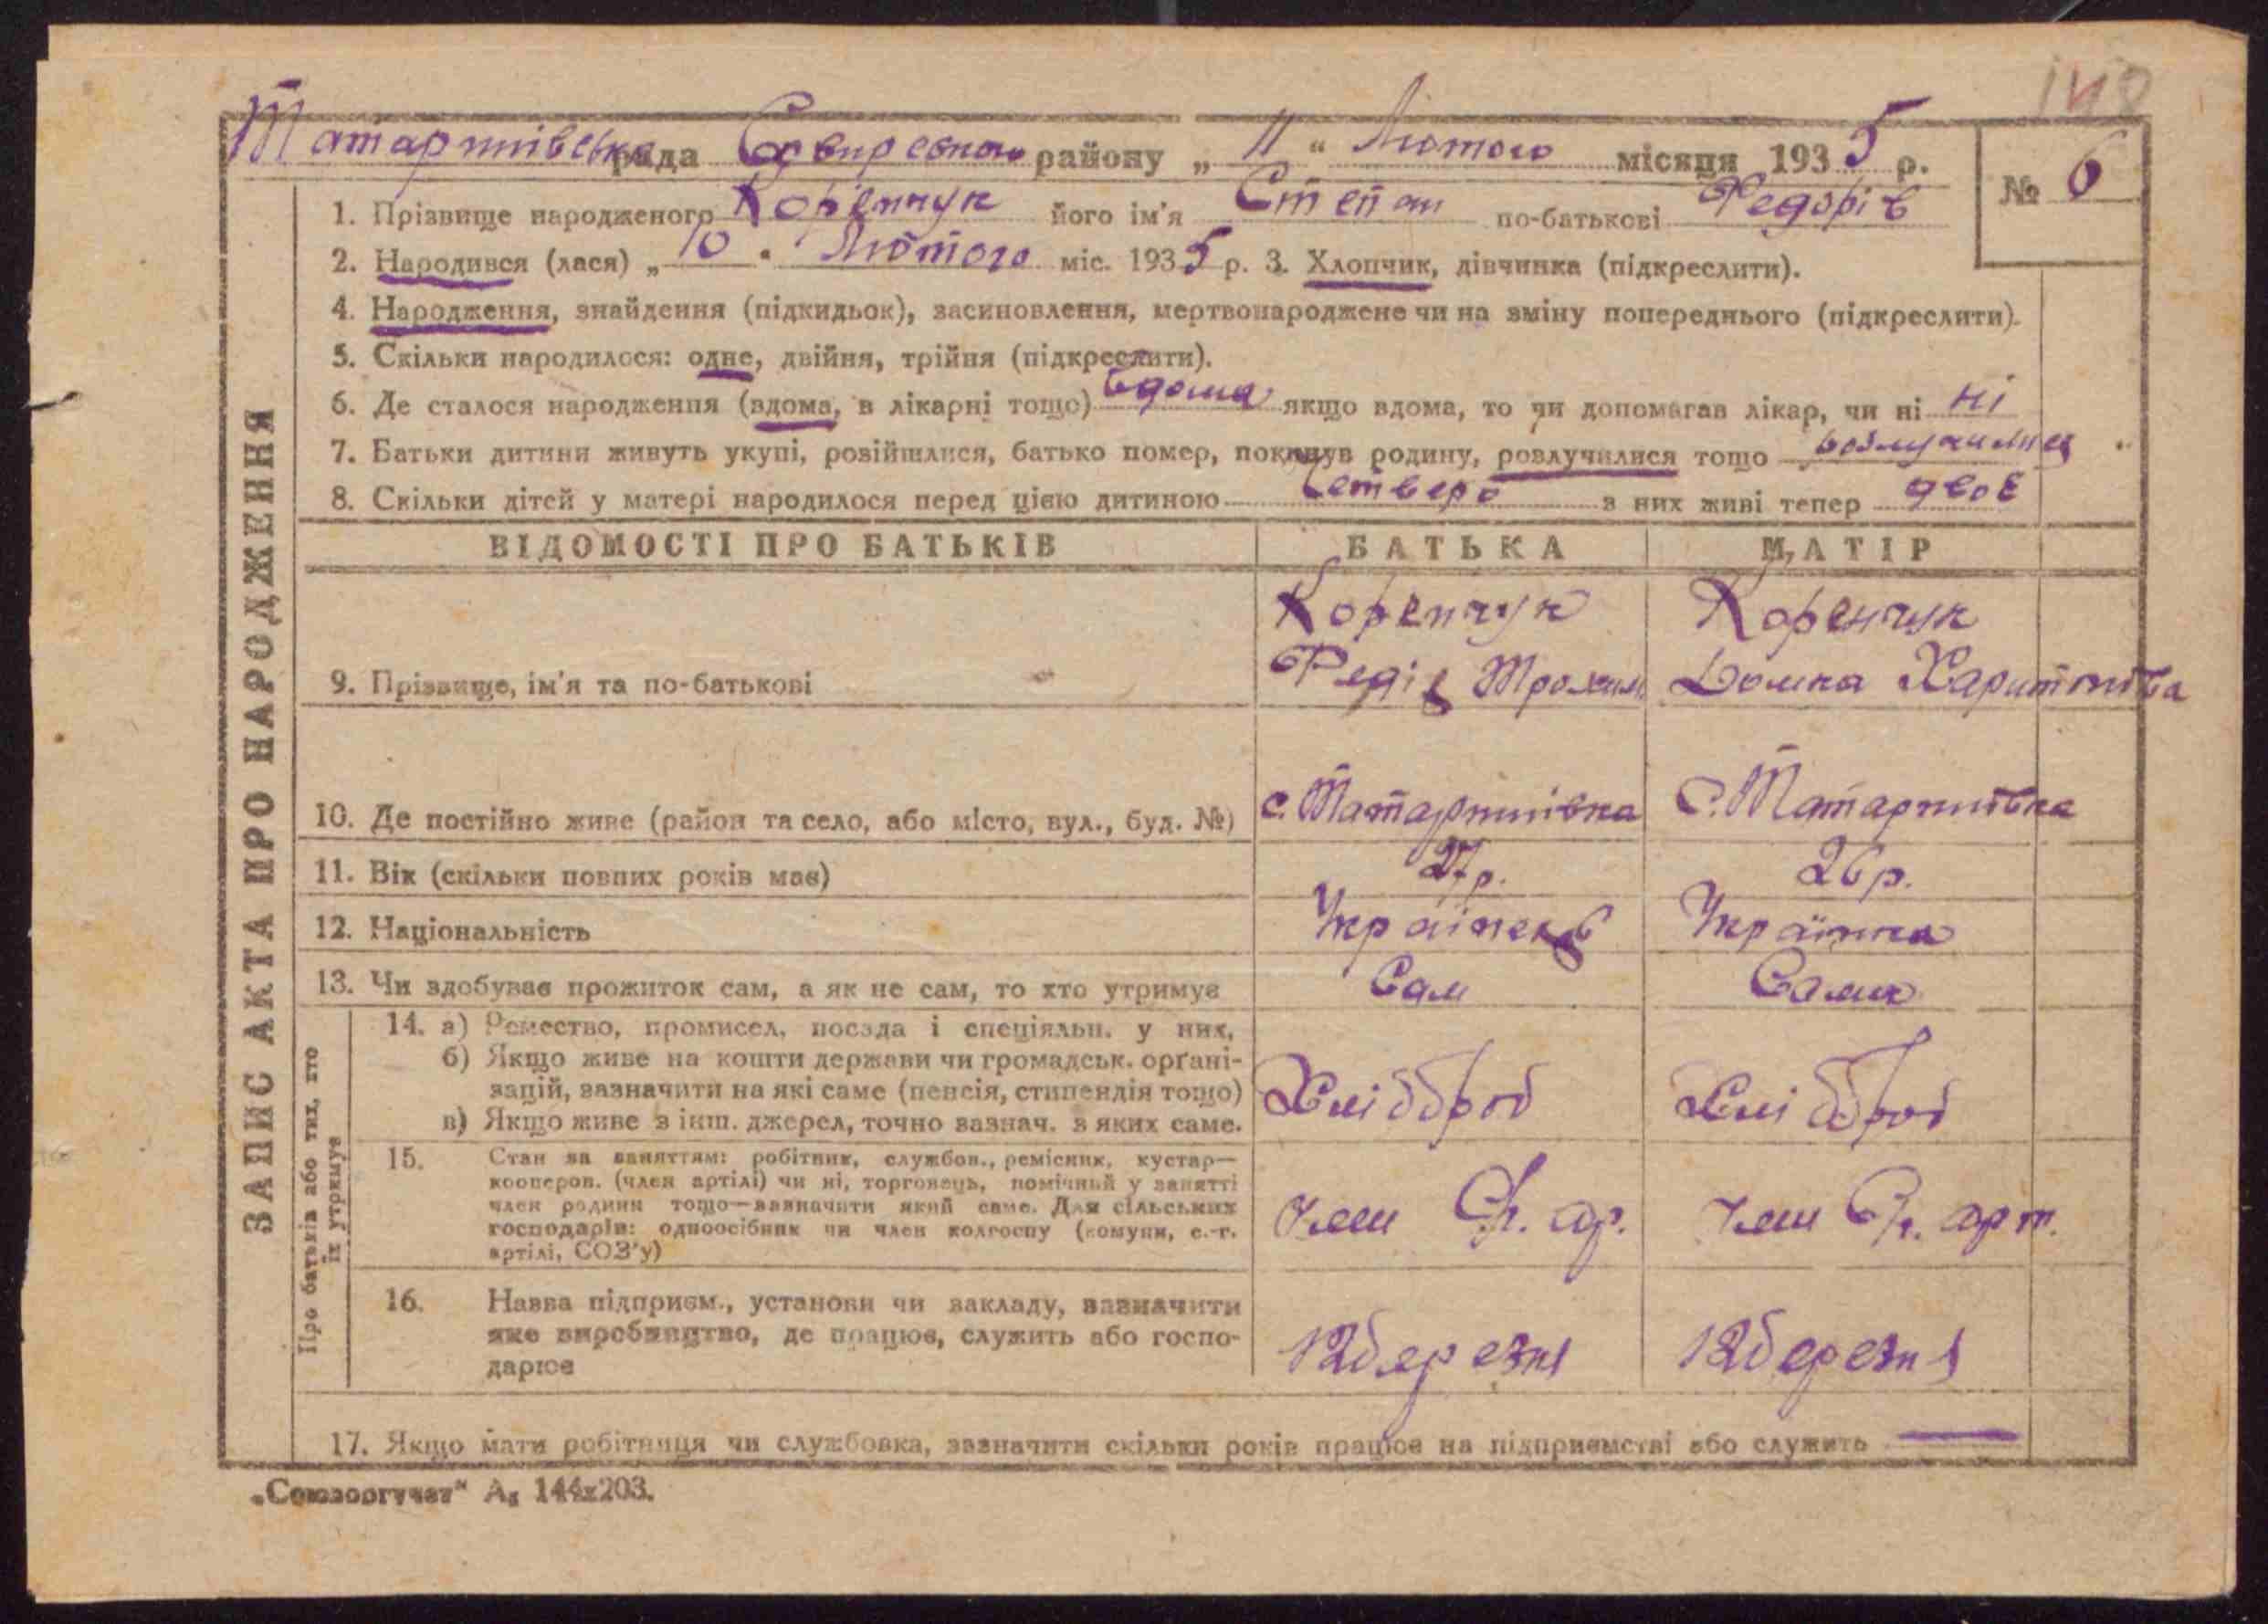 148
Татаринівська рада Сквирського району „ 11 “ Лютого місяця 1935 р.
№ 6
1. Прізвище народженого Коренчук його ім'я Степан по-батькові Федорів
2. Народився (лася) „ 10 " Лютого міс. 1935 р. 3. Хлопчик, дівчинка (підкреслити).
4. Народження, знайдення (підкидьок), засиновлення, мертвонароджене чи на зміну попереднього (підкреслити).
5. Скільки народилося: одне, двійня, трійня (підкреслити).
6. Де сталося народження (вдома, в лікарні тощо) вдома якщо вдома, то чи допомагав лікар, чи ні ні
7. Батьки дитини живуть укупі, розійшлися, батько помер, покинув родину, розлучилися тощо
8. Скільки дітей у матері народилося перед цією дитиною четверо з них живі тепер двоє
ЗАПИС АКТА ПРО НАРОДЖЕННЯ
ВІДОМОСТІ ПРО БАТЬКІВ БАТЬКА МАТІР
Коренчук Коренчук
9. Прізвище, ім'я та по-батькові Федір Трохим. Домка Харитонівна
10. Де постійно живе (район та село, або місто, вул., буд. №) с. Татаринівка с. Татаринівка
11. Вік (скільки повних років має) 27р. 26р.
12. Національність Українець Українка
13. Чи здобуває прожиток сам, а як не сам, то хто утримує Сам Сама
Про батьків або тих, хто
їх утримує
14. а) Ремество, промисел, посада і спеціяльн. у них,
б) Якщо живе на кошти держави чи громадськ. орґані-
зацій, зазначити на які саме (пенсія, стипендія тощо) Хлібороб Хлібороб
в) Якщо живе з інш. джерел, точно зазнач. з яких саме.
15. Стан за заняттям: робітник, службов., ремісник, кустар—
кооперов. (член артілі) чи ні, торговець, помічний у занятті
член родини тощо—зазначити який саме. Для сільських член ар. член арт.
господарів: одноосібник чи член колгоспу (комуни, с.-г.
артілі, СОЗ'у)
16. Назва підприєм., установи чи закладу, зазначити
яке виробництво, де працює, служить або госпо- 12березня 12березня
дарює
17. Якщо мати робітниця чи службовка, зазначити скільки років працює на підприємстві або служить —
„Союзоргучет" А₅ 144x203.